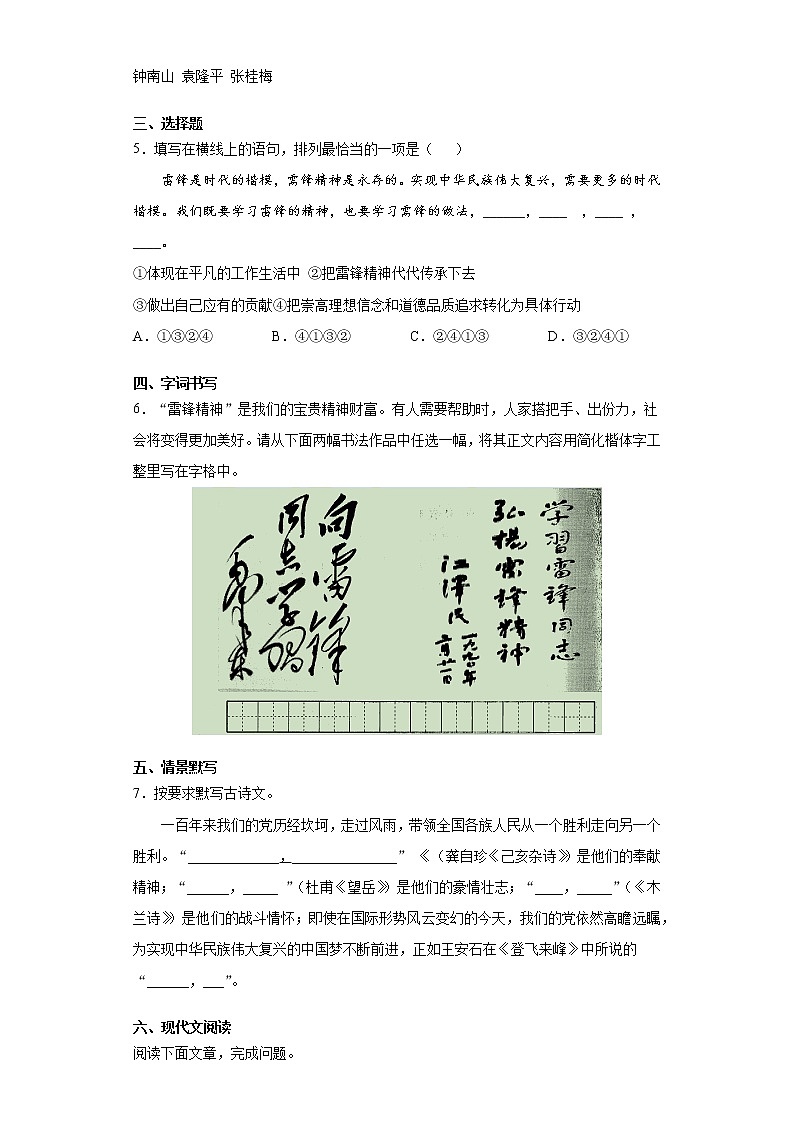 钟南山 袁隆平 张桂梅
三、选择题
5．填写在横线上的语句，排列最恰当的一项是（ ）
雷锋是时代的楷模，雷锋精神是永存的。实现中华民族伟大复兴，需要更多的时代
楷模。我们既要学习雷锋的精神，也要学习雷锋的做法，______，____ ，____ ，
____。
①体现在平凡的工作生活中 ②把雷锋精神代代传承下去
③做出自己应有的贡献④把崇高理想信念和道德品质追求转化为具体行动
A．①③②④ B．④①③② C．②④①③ D．③②④①
四、字词书写
6．“雷锋精神”是我们的宝贵精神财富。有人需要帮助时，人家搭把手、出份力，社
会将变得更加美好。请从下面两幅书法作品中任选一幅，将其正文内容用简化楷体字工
整里写在字格中。
学習雷锋同志
弘揚雷锋精神
江澤民
一九九〇年
二月廿一日
向雷锋
同志学習
毛泽东
五、情景默写
7．按要求默写古诗文。
一百年来我们的党历经坎坷，走过风雨，带领全国各族人民从一个胜利走向另一个
胜利。“_____________，_______________” 《（龚自珍《己亥杂诗》）是他们的奉献
精神；“______，_____ ”（杜甫《望岳》）是他们的豪情壮志；“____，_____”（《木
兰诗》）是他们的战斗情怀；即使在国际形势风云变幻的今天，我们的党依然高瞻远瞩，
为实现中华民族伟大复兴的中国梦不断前进，正如王安石在《登飞来峰》中所说的
“______，___”。
六、现代文阅读
阅读下面文章，完成问题。